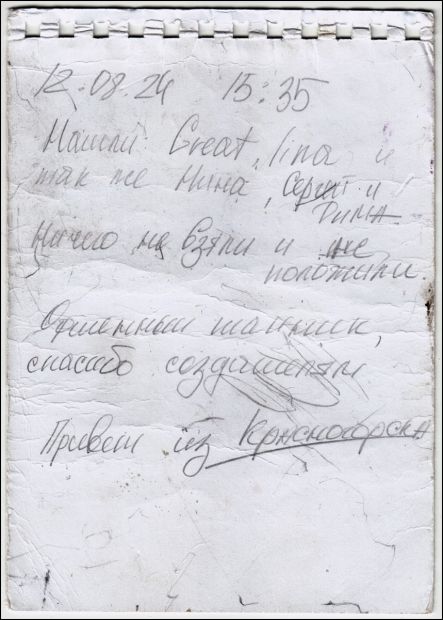 12.08.24 15:35
Нашли: Great, lina и
так же Нина, Сергей и
Дима.
Ничего не взяли и не
положили.
Отменный тайник,
спасибо создателям
Привет из Красногорска